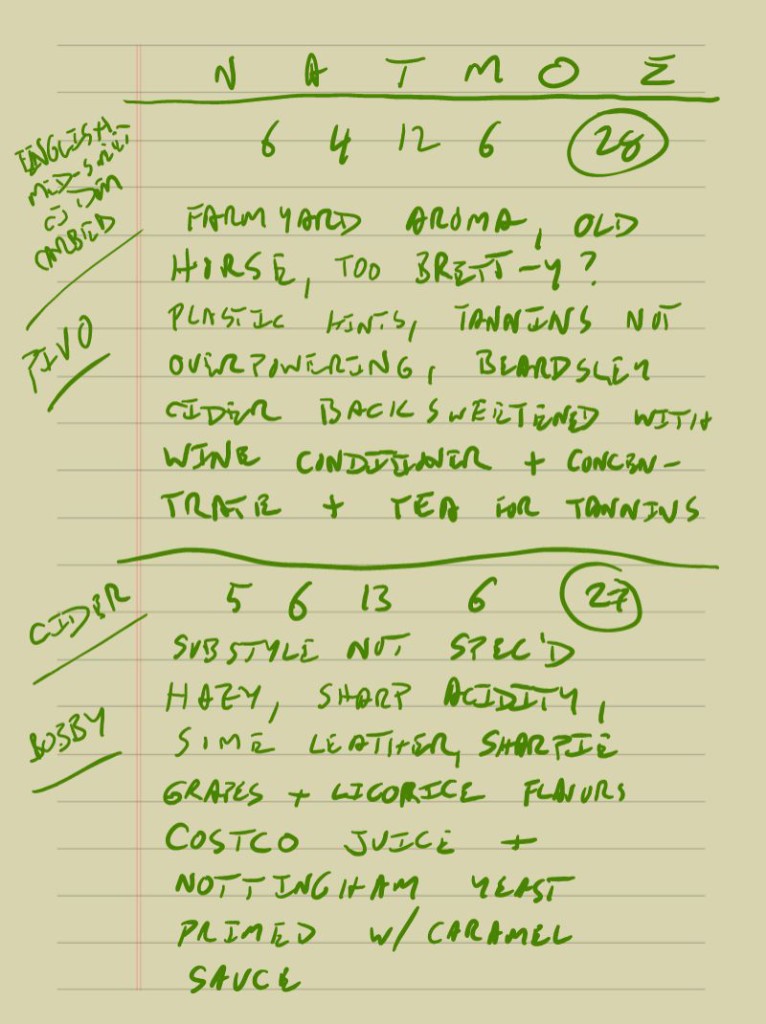 N A T M O Σ
6 4 12 6 28
ENGLISH,
MED-SWEET
CIDER
CARBED
PIVO
FARMYARD AROMA, OLD
HORSE, TOO BRETT-Y?
PLASTIC HINTS, TANNINS NOT
OVERPOWERING, BEARDSLEY
CIDER BACKSWEETENED WITH
WINE CONDITIONER + CONCEN-
TRATE + TEA FOR TANNINS
CIDER
BOBBY
5 6 13 6 27
SUBSTYLE NOT SPEC'D
HAZY, SHARP ACIDITY,
SOME LEATHER, SHARPIE
GRAPES + LICORICE FLAVORS
COSTCO JUICE +
NOTTINGHAM YEAST
PRIMED W/ CARAMEL
SAUCE